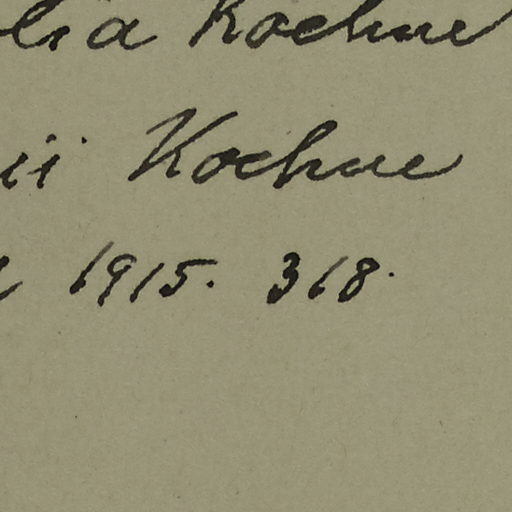 lia Koehne
ii Koehne
1915. 318.